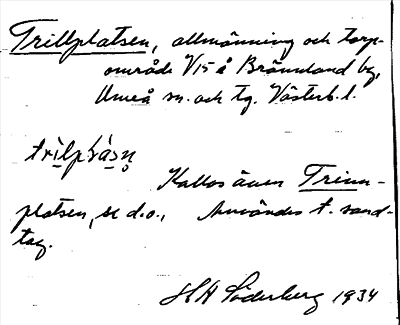 Trillplatsen, allmänning och torp-
område V15 å Brännland by,
Umeå sn. och tg. Västerb. l.
trilplásn
Kallas även Trinn-
platsen, se d.o., Användes t. sand-
tag.
HA Söderberg 1934